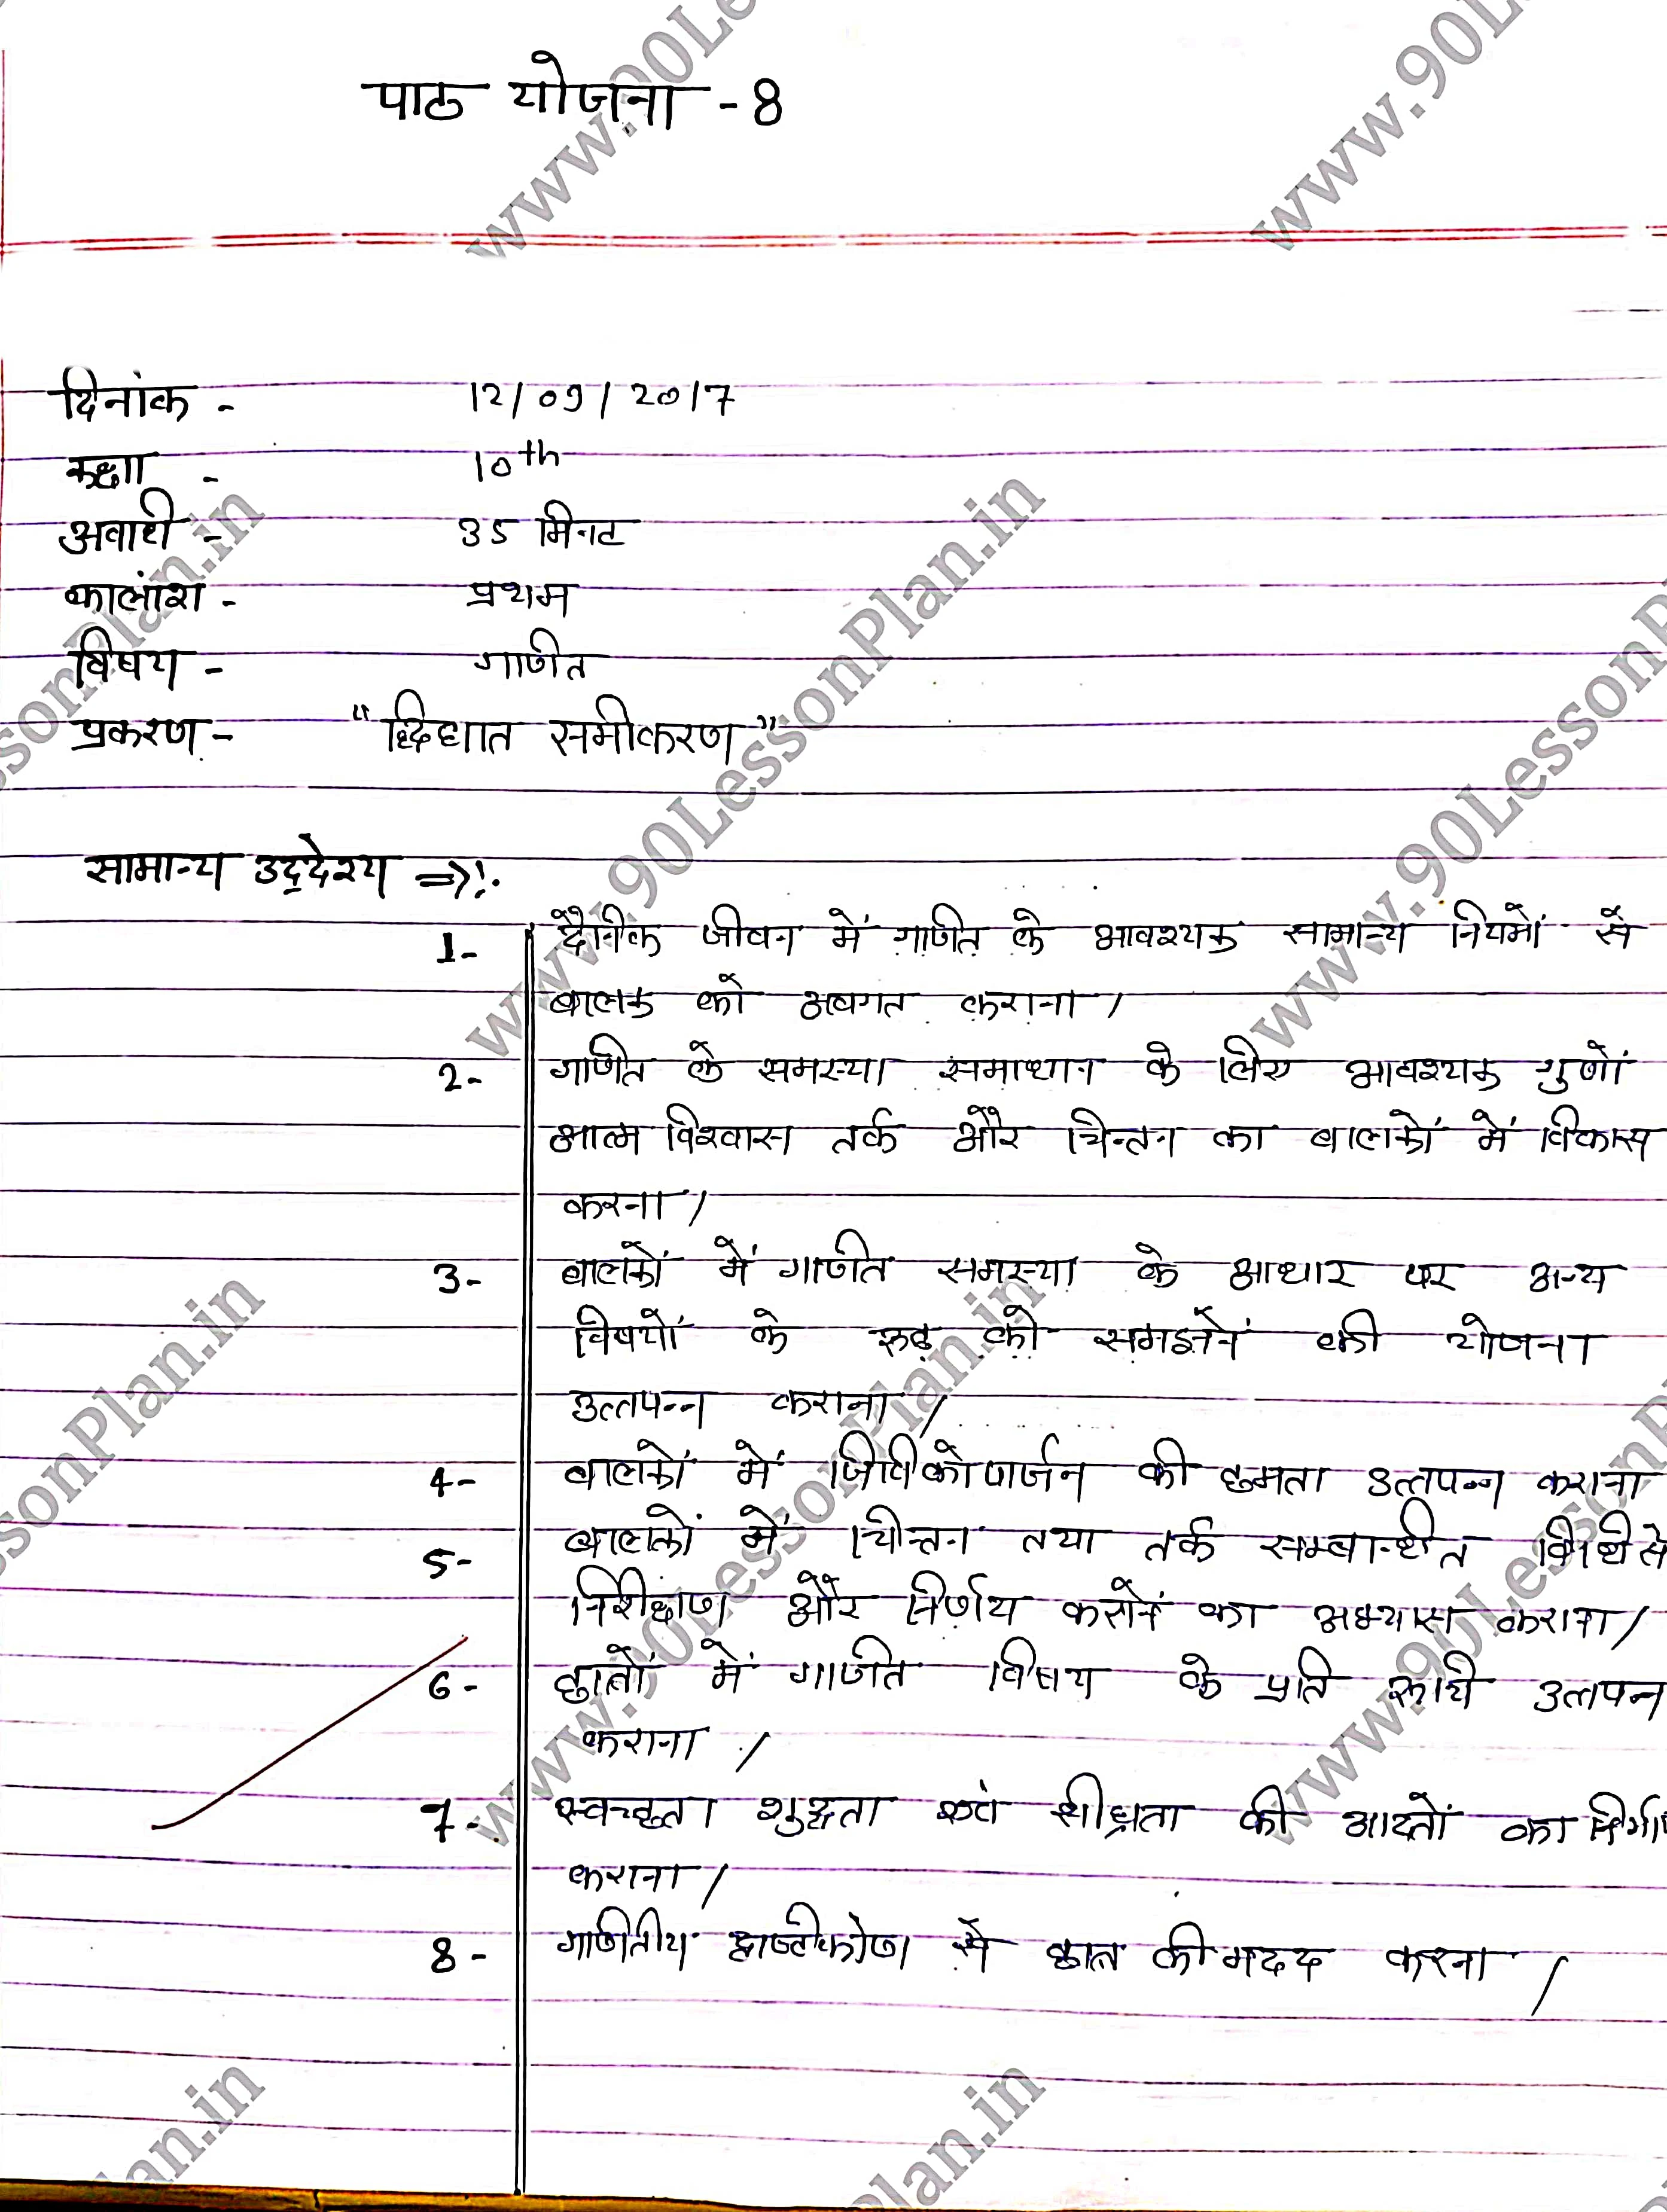 पाठ योजना - 8
दिनांक - 12/09/2017
कक्षा - 10th
अवधि - 35 मिनट
कालांश - प्रथम
विषय - गणित
प्रकरण - "द्विघात समीकरण"
सामान्य उद्देश्य ⇒:-
1- दैनिक जीवन में गणित के आवश्यक सामान्य नियमों से
बालक को अवगत कराना।
2- गणित के समस्या समाधान के लिए आवश्यक गुणों
आत्म विश्वास तर्क और चिन्तन का बालकों में विकास
करना।
3- बालकों में गणित समस्या के आधार पर अन्य
विषयों के को समझने की योजना
उत्तपन्न कराना।
4- बालकों में जिविकोपार्जन की छमता उत्तपन्न कराना
5- बालकों में चिन्तन तथा तर्क सम्बन्धित विधि से
निरीक्षण और निर्णय करने का अभ्यास कराना।
6- छात्रों में गणित विषय के प्रति रूचि उत्तपन्न
कराना।
7- स्वच्छता शुद्धता एवं शीघ्रता की आदतों का
कराना।
8- गणितीय दृष्टिकोण से छात्र की मदद करना।
www.90LessonPlan.in